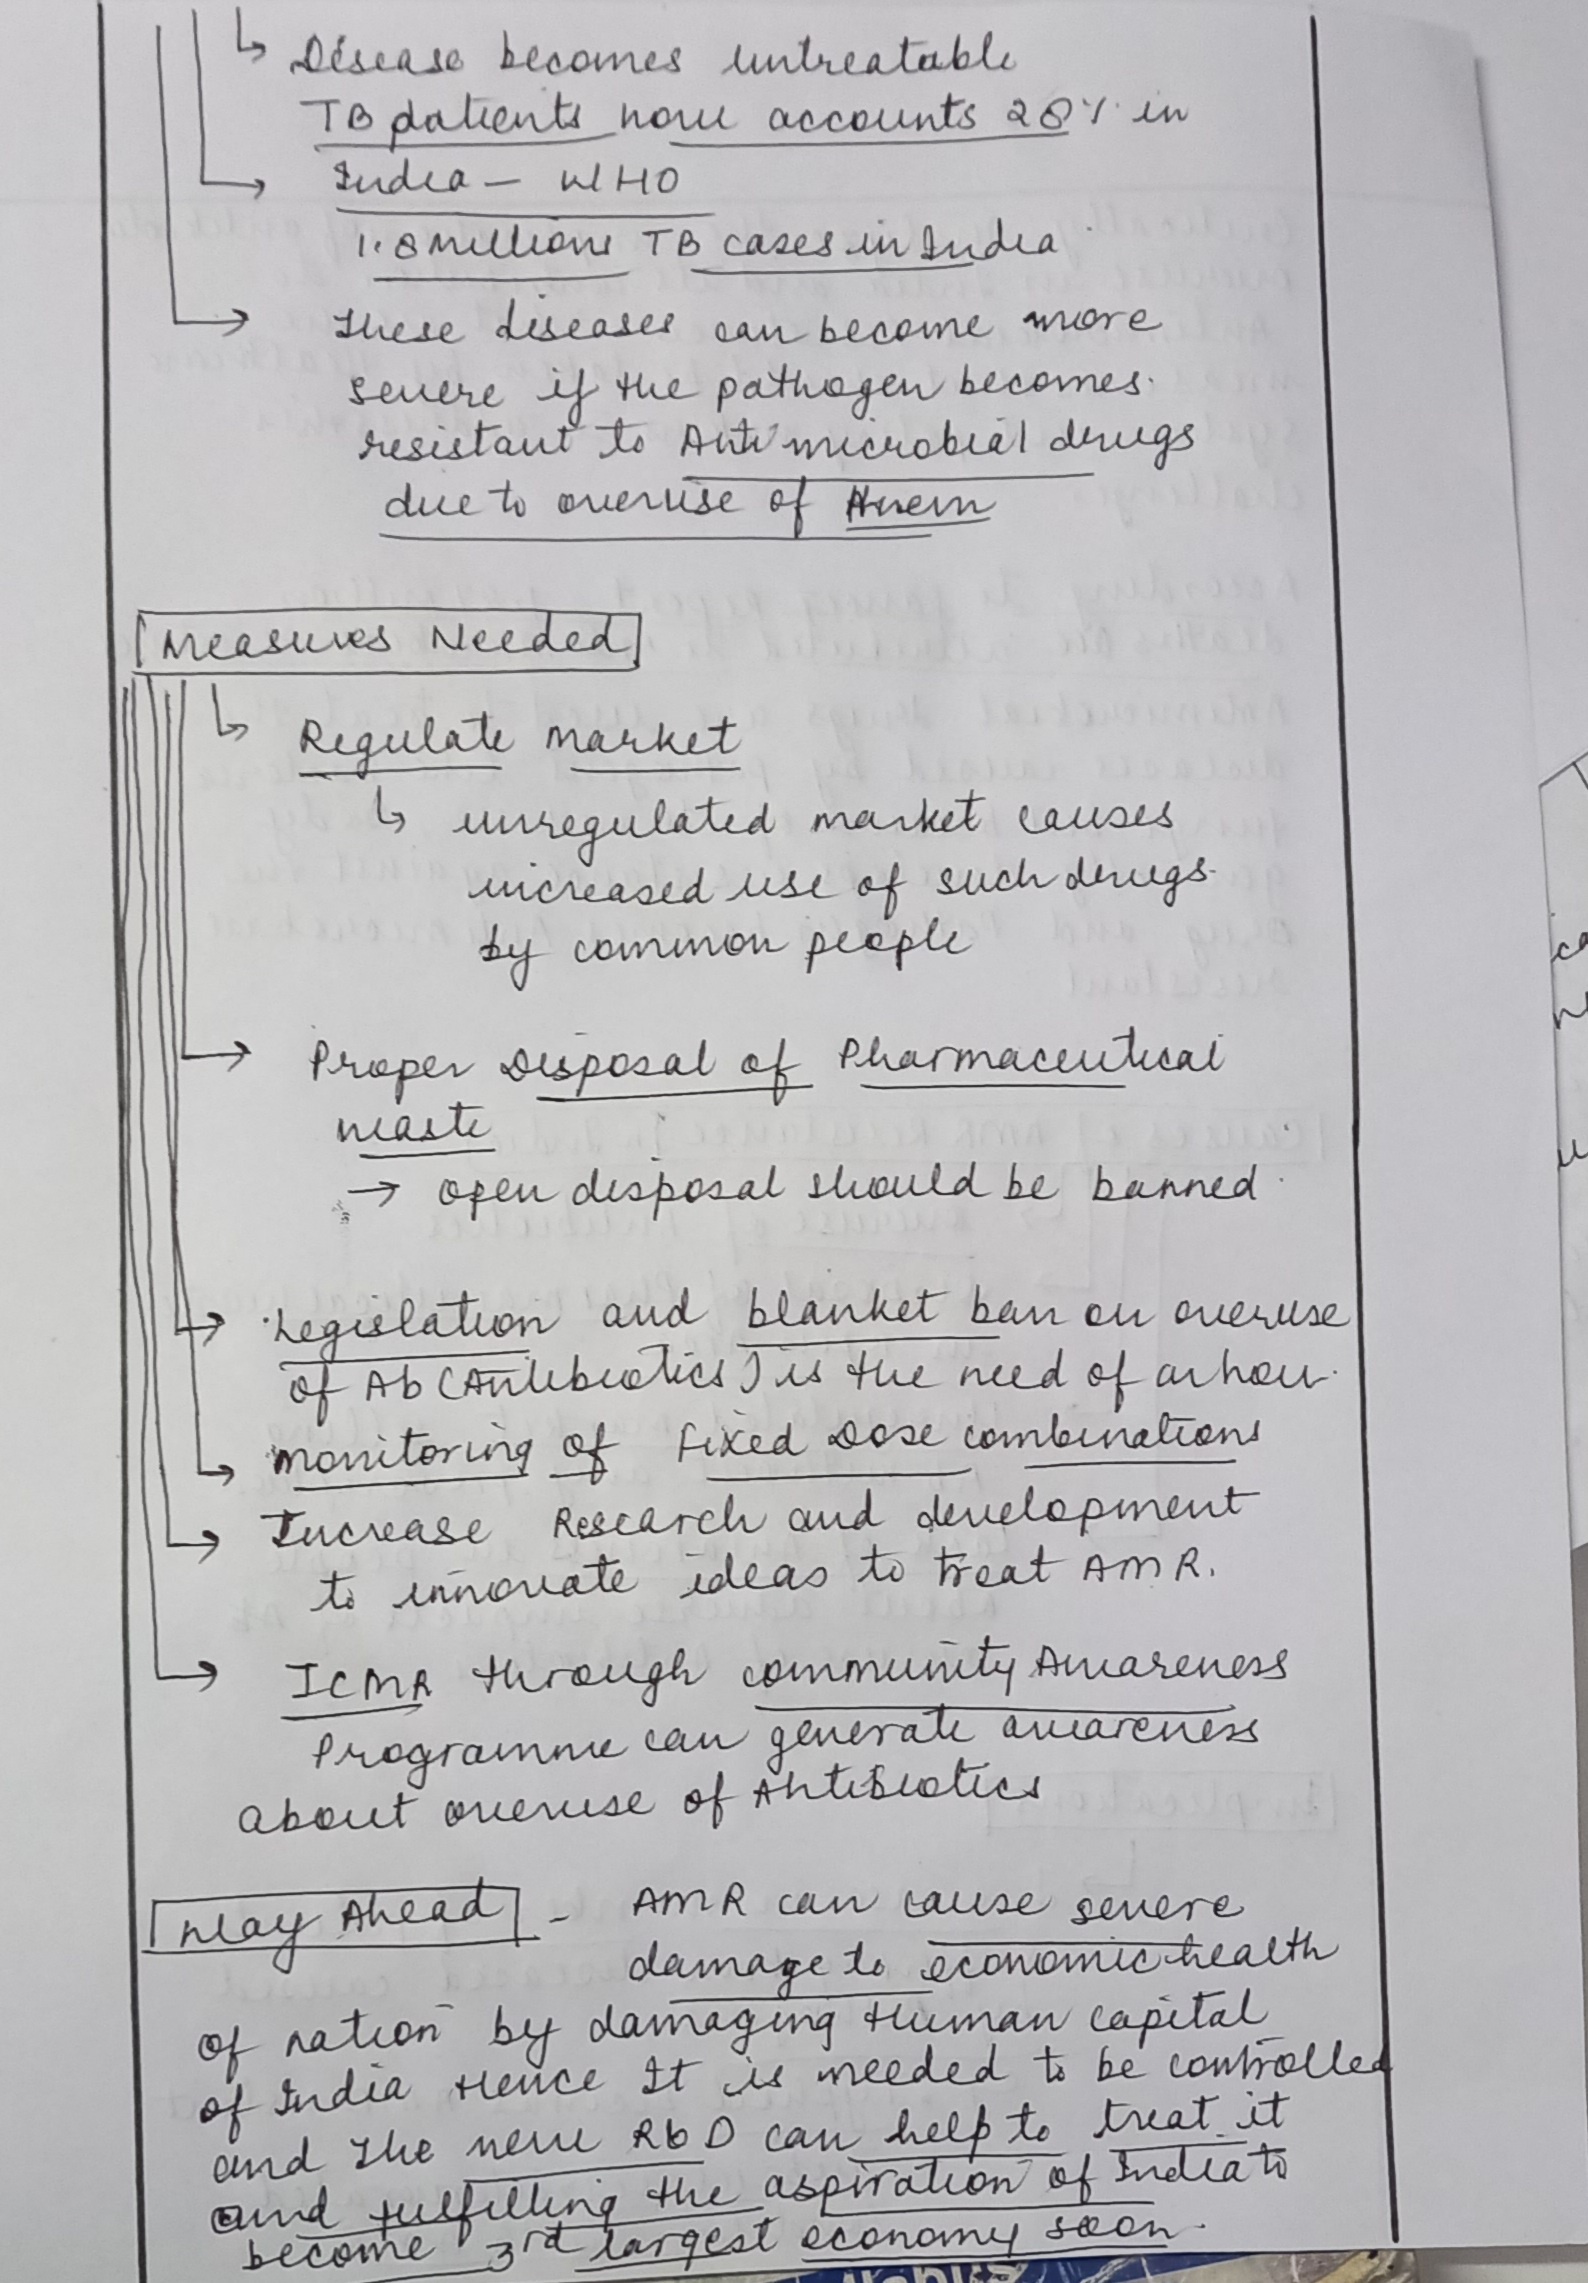 Disease becomes untreatable
TB patients now accounts 28% in
India - WHO
1.8 millions TB cases in India
These diseases can become more
severe if the pathogen becomes
resistant to Antimicrobial drugs
due to overuse of them
Measures Needed
Regulate Market
unregulated market causes
increased use of such drugs
by common people
Proper Disposal of Pharmaceutical
waste
→ open disposal should be banned
Legislation and blanket ban on overuse
of Ab (Antibiotics) is the need of an hour.
Monitoring of Fixed Dose combinations
Increase Research and development
to innovate ideas to treat AMR.
ICMR through community Awareness
Programme can generate awareness
about overuse of Antibiotics
Way Ahead - AMR can cause severe
damage to economic health
of nation by damaging Human capital
of India Hence It is needed to be controlled
and the new R&D can help to treat it
and fulfilling the aspiration of India to
become 3rd largest economy soon.